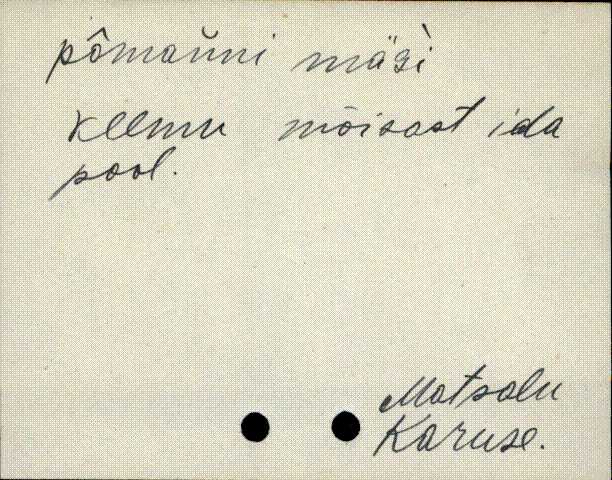 pômaǔni mägì
Kelmu mõisast ida
pool.
Matsalu
Karuse.